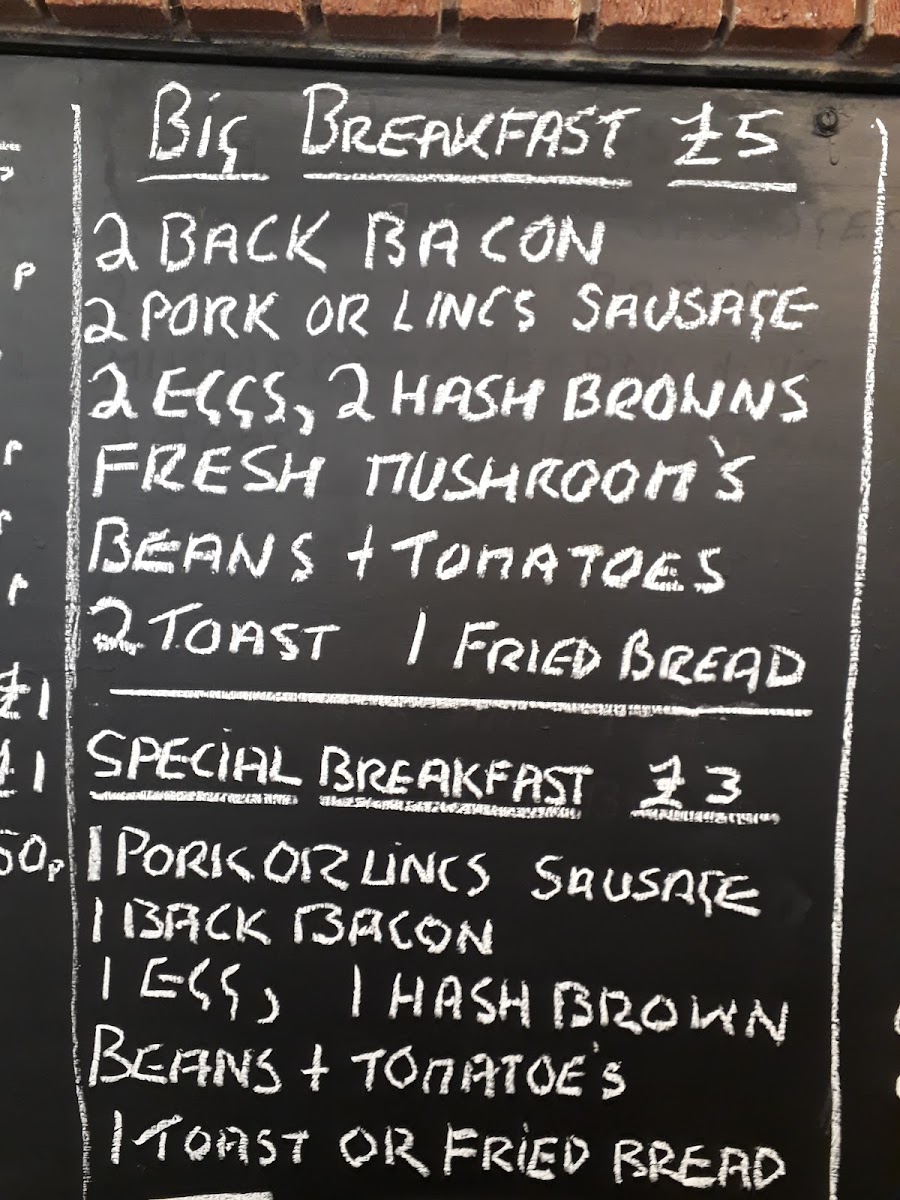 BiG BREAKFAST £5
2 BACK BACON
2 PORK OR LINCS SAUSAGE
2 EGGS, 2 HASH BROWNS
FRESH MUSHROOM'S
BEANS + TOMATOES
2 TOAST 1 FRIED BREAD
SPECiAL BREAKFAST £3
1 PORK OR LiNCS SAUSAGE
1 BACK BACON
1 EGG, 1 HASH BROWN
BEANS + TOMATOE'S
1 TOAST OR FRiED BREAD
P
£1
£1
50p